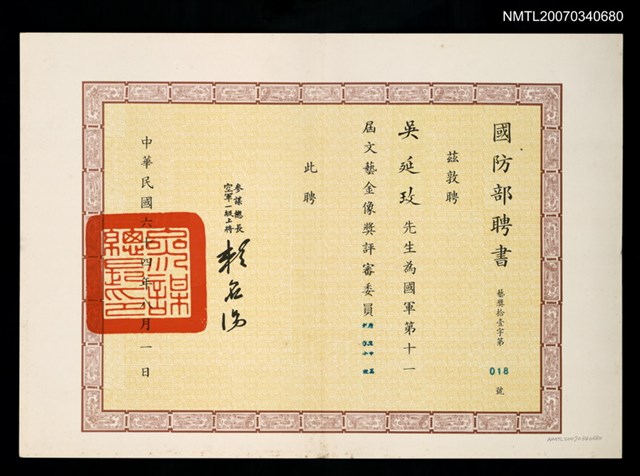 NMTL20070340680
國防部聘書
藝獎拾壹字第018號
茲敦聘
吳延玫先生為國軍第十一
屆文藝金像獎評審委員
此聘
參謀總長
空軍一級上將
賴名湯
中華民國六十四年八月一日
參謀總長印
NMTL20070340680